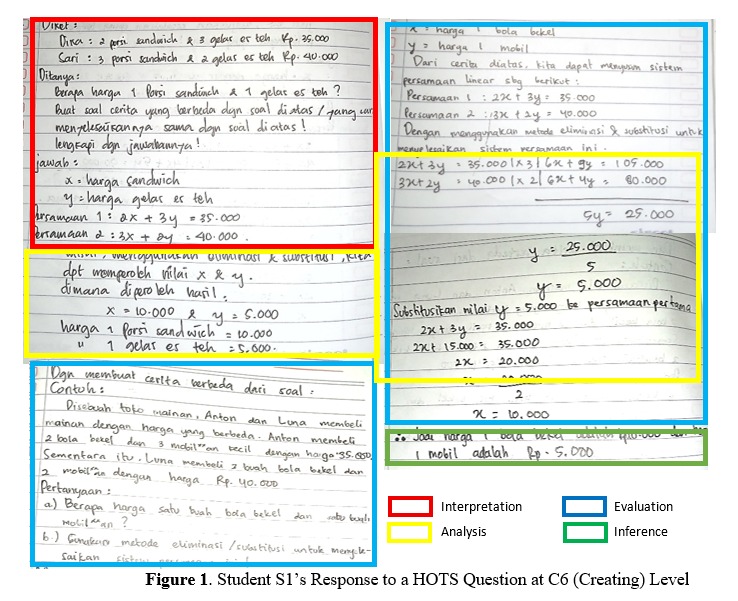 Diket :
Dina : 2 porsi sandwich & 3 gelas es teh Rp. 35.000
Sari : 3 porsi sandwich & 2 gelas es teh Rp. 40.000
Ditanya :
Berapa harga 1 Porsi sandwich & 1 gelas es teh ?
Buat soal cerita yang berbeda dgn soal diatas / yang
menyelesaikannya sama dgn soal di atas !
lengkapi dgn jawabannya !
jawab :
x = harga sandwich
y = harga gelas es teh
Persamaan 1 : 2x + 3y = 35.000
Persamaan 2 : 3x + 2y = 40.000 .
menggunakan eliminasi & substitusi , kita
dpt memperoleh nilai x & y .
dimana diperoleh hasil :
x = 10.000 & y = 5.000
harga 1 Porsi sandwich = 10.000
" 1 gelas es teh = 5.000.
Dgn membuat cerita berbeda dari soal :
Contoh :
Disebuah toko mainan, Anton dan Luna membeli
mainan dengan harga yang berbeda. Anton membeli
2 bola bekel dan 3 mobil"an kecil dengan harga 35.000.
Sementara itu, Luna membeli 3 buah bola bekel dan
2 mobil"an dengan harga Rp. 40.000
Pertanyaan :
a.) Berapa harga satu buah bola bekel dan satu buah
mobil"an ?
b.) Gunakan metode eliminasi / substitusi untuk menyele-
saikan sistem persamaan ini !
x = harga 1 bola bekel
y = harga 1 mobil
Dari cerita diatas, kita dapat menyusun sistem
persamaan linear sbg berikut :
Persamaan 1 : 2x + 3y = 35.000
Persamaan 2 : 3x + 2y = 40.000
Dengan menggunakan metode eliminasi & substitusi untuk
menyelesaikan sistem persamaan ini .
2x + 3y = 35.000 | x 3 | 6x + 9y = 105.000
3x + 2y = 40.000 | x 2 | 6x + 4y = 80.000
5y = 25.000
y = 25.000
5
y = 5.000
Substitusikan nilai y = 5.000 ke persamaan pertama
2x + 3y = 35.000
2x + 15.000 = 35.000
2x = 20.000
2
x = 10.000
∴ Jadi harga 1 bola bekel adalah Rp 10.000 dan
1 mobil adalah Rp. 5.000
Interpretation
Evaluation
Analysis
Inference
Figure 1. Student S1's Response to a HOTS Question at C6 (Creating) Level